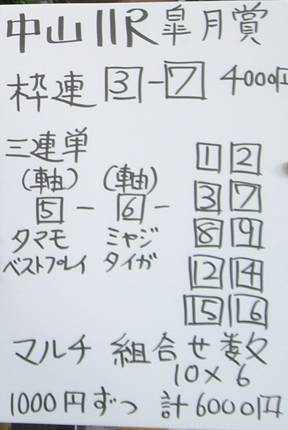 中山11R 皐月賞
枠連 3-7 4000円
三連単
(軸) (軸)
5 - 6 -
タマモ ミヤジ
ベストプレイ タイガ
1 2
3 7
8 9
12 14
15 16
マルチ 組合せ数
10×6
1000円ずつ 計6000円